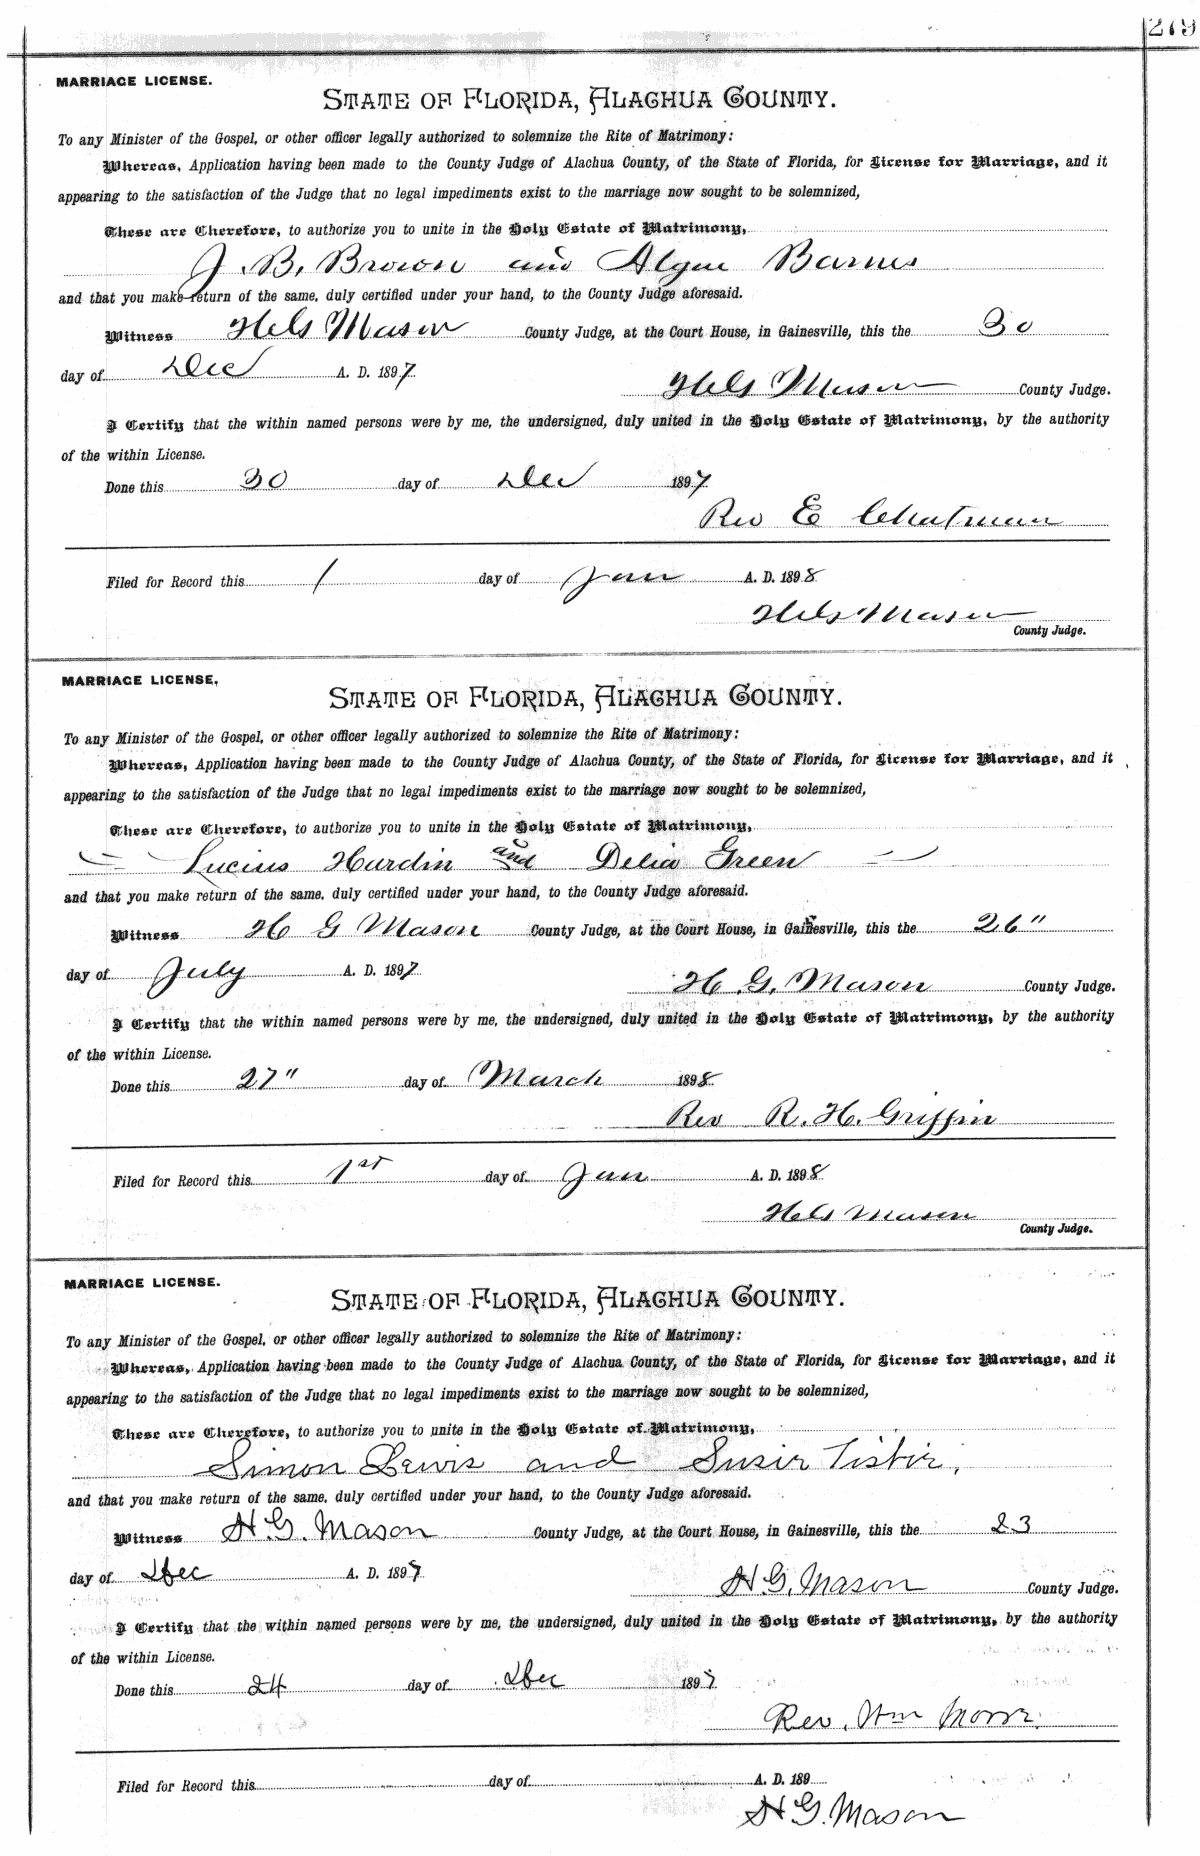 279
MARRIAGE LICENSE.
STATE OF FLORIDA, ALACHUA COUNTY.
To any Minister of the Gospel, or other officer legally authorized to solemnize the Rite of Matrimony:
Whereas, Application having been made to the County Judge of Alachua County, of the State of Florida, for License for Marriage, and it
appearing to the satisfaction of the Judge that no legal impediments exist to the marriage now sought to be solemnized,
These are Therefore, to authorize you to unite in the Holy Estate of Matrimony,
J. B. Brown and Barnes
and that you make return of the same, duly certified under your hand, to the County Judge aforesaid.
Witness H G Mason County Judge, at the Court House, in Gainesville, this the 30
day of Dec A. D. 1897
H G Mason County Judge.
I Certify that the within named persons were by me, the undersigned, duly united in the Holy Estate of Matrimony, by the authority
of the within License.
Done this 30 day of Dec 1897
Rev E Chatman
Filed for Record this 1 day of Jan A. D. 1898
H G Mason
County Judge.
MARRIAGE LICENSE.
STATE OF FLORIDA, ALACHUA COUNTY.
To any Minister of the Gospel, or other officer legally authorized to solemnize the Rite of Matrimony:
Whereas, Application having been made to the County Judge of Alachua County, of the State of Florida, for License for Marriage, and it
appearing to the satisfaction of the Judge that no legal impediments exist to the marriage now sought to be solemnized,
These are Therefore, to authorize you to unite in the Holy Estate of Matrimony,
Lucius Hardin and Delia Green
and that you make return of the same, duly certified under your hand, to the County Judge aforesaid.
Witness H G Mason County Judge, at the Court House, in Gainesville, this the 26"
day of July A. D. 1897
H. G. Mason County Judge.
I Certify that the within named persons were by me, the undersigned, duly united in the Holy Estate of Matrimony, by the authority
of the within License.
Done this 27" day of March 1898
Rev R. H. Griffin
Filed for Record this 1st day of Jan A. D. 1898
H G Mason
County Judge.
MARRIAGE LICENSE.
STATE OF FLORIDA, ALACHUA COUNTY.
To any Minister of the Gospel, or other officer legally authorized to solemnize the Rite of Matrimony:
Whereas, Application having been made to the County Judge of Alachua County, of the State of Florida, for License for Marriage, and it
appearing to the satisfaction of the Judge that no legal impediments exist to the marriage now sought to be solemnized,
These are Therefore, to authorize you to unite in the Holy Estate of Matrimony,
Simon Lewis and Susie
and that you make return of the same, duly certified under your hand, to the County Judge aforesaid.
Witness H. G. Mason County Judge, at the Court House, in Gainesville, this the 23
day of Dec A. D. 1897
H G. Mason County Judge.
I Certify that the within named persons were by me, the undersigned, duly united in the Holy Estate of Matrimony, by the authority
of the within License.
Done this 24 day of Dec 1897
Rev. Wm
Filed for Record this day of A. D. 189
H G. Mason